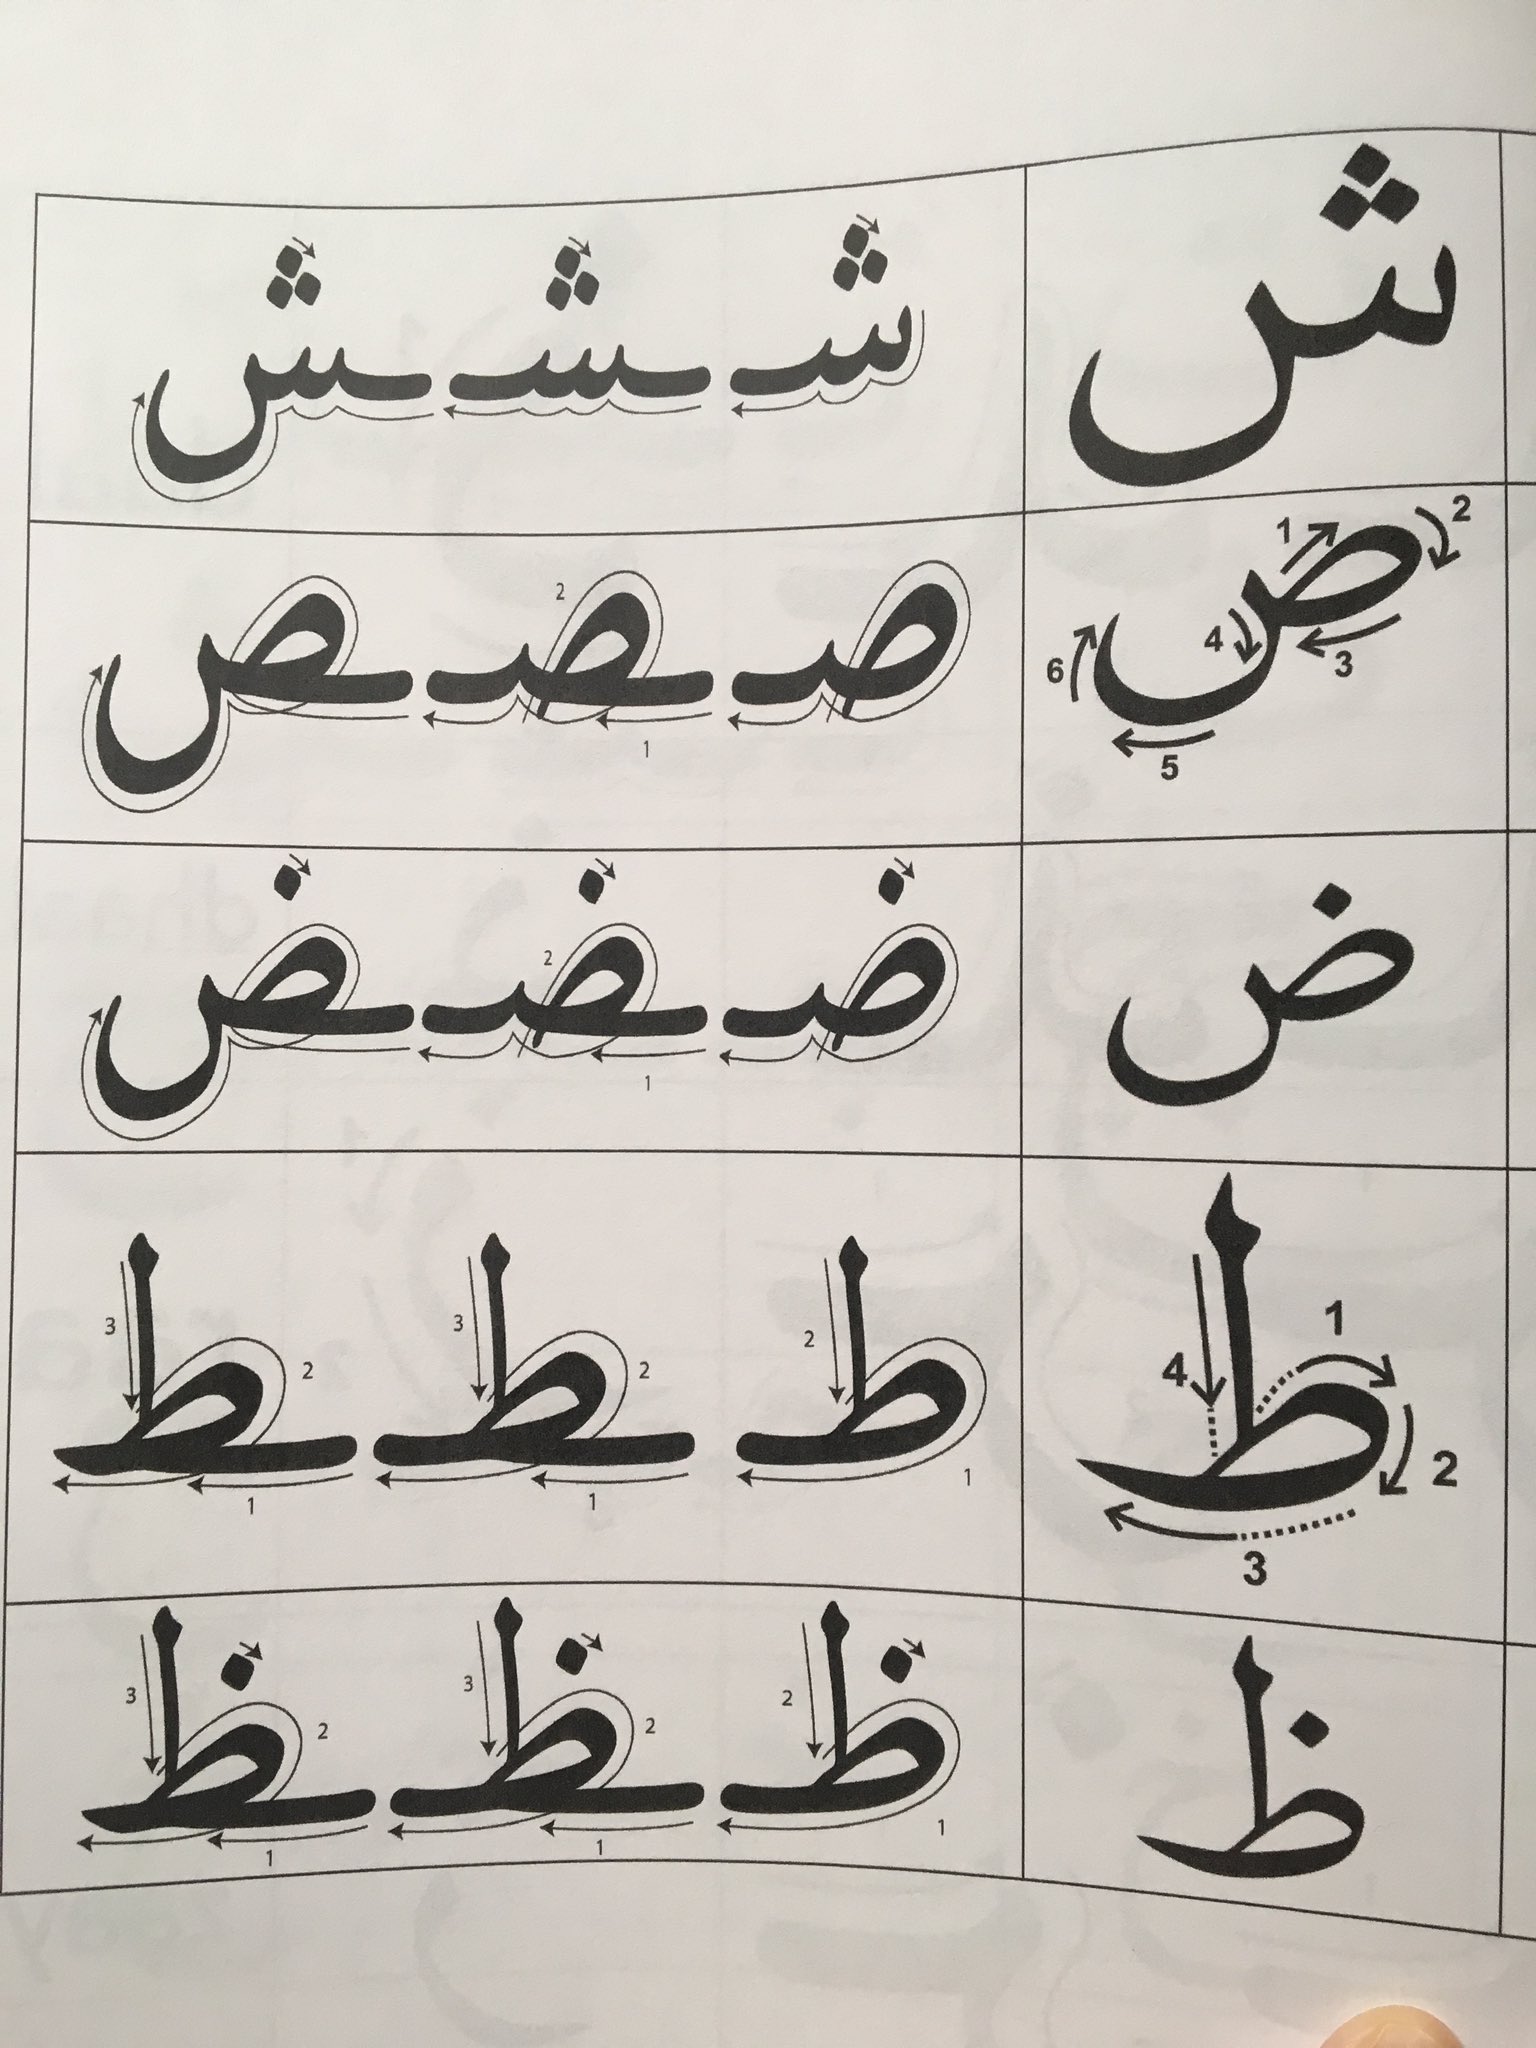 ش شـ ـشـ ـش
ص صـ ـصـ ـص
1 2 3 4 5 6
2 1
ض ضـ ـضـ ـض
2 1
ط طـ ـطـ ـط
1 2 3 4
2 1 3 2 1 3 2 1
ظ ظـ ـظـ ـظ
2 1 3 2 1 3 2 1